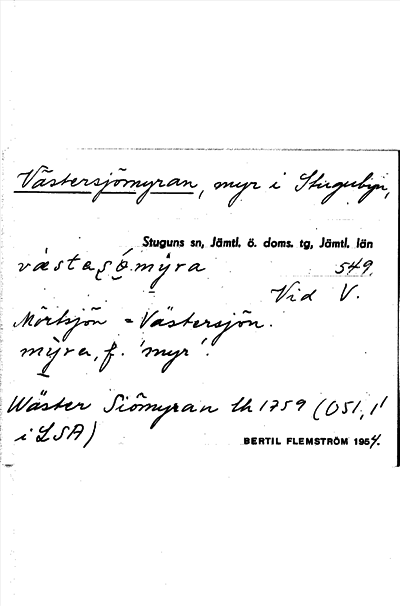 Västersjömyran, myr i Stugubyn,
Stuguns sn, Jämtl. ö. doms. tg, Jämtl. län
549.
Vid V.
Mörtsjön = Västersjön.
f. 'myr'.
Wäster Siömyran lh 1759 (O51, 1'
i LSA)
BERTIL FLEMSTRÖM 1954.